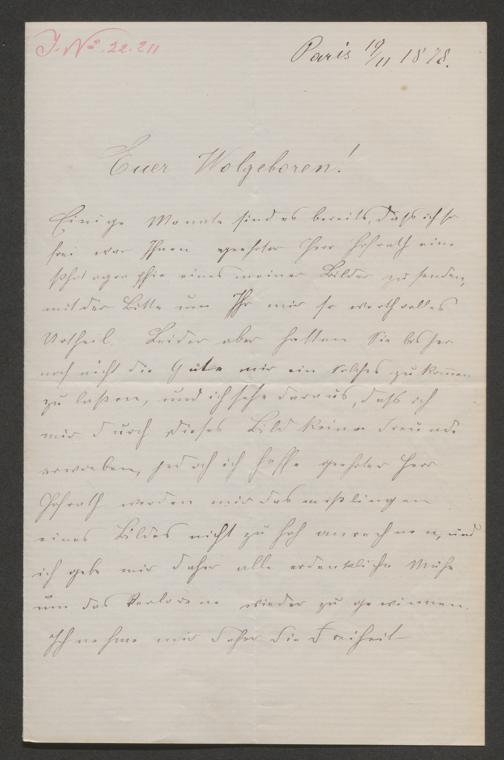 J. No. 22.211
Paris 19/11 1878.
Euer Wolgeboren!
Einige Monate sind es bereits, daß ich so
frei war Ihnen geehrter Herr Hofrath eine
Fotografie eines meiner Bilder zu senden,
mit der Bitte um Ihr mir so werthvolles
Urtheil. Leider aber hatten Sie bisher
noch nicht die Güte mir ein solches zukommen
zu laßen, und ich sehe daraus, daß ich
mir durch dieses Bild keine Freunde
erworben, jedoch ich hoffe geehrter Herr
Hofrath werden mir das mißlingen
eines Bildes nicht zu hoh anrechnen, und
ich gebe mir daher alle erdenkliche Mühe
um das Verlorene wieder zu gewinnen.
Ich nehme mir daher die Freiheit